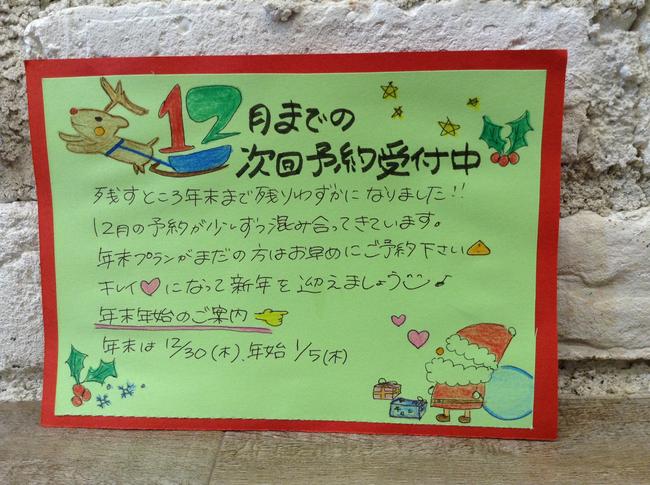 12月までの
次回予約受付中
残すところ年末まで残りわずかになりました!!
12月の予約が少しずつ混み合ってきています。
年末プランがまだの方はお早めにご予約下さい
キレイ♡になって新年を迎えましょう♪
年末年始のご案内
年末は12/30(木)、年始1/5(木)